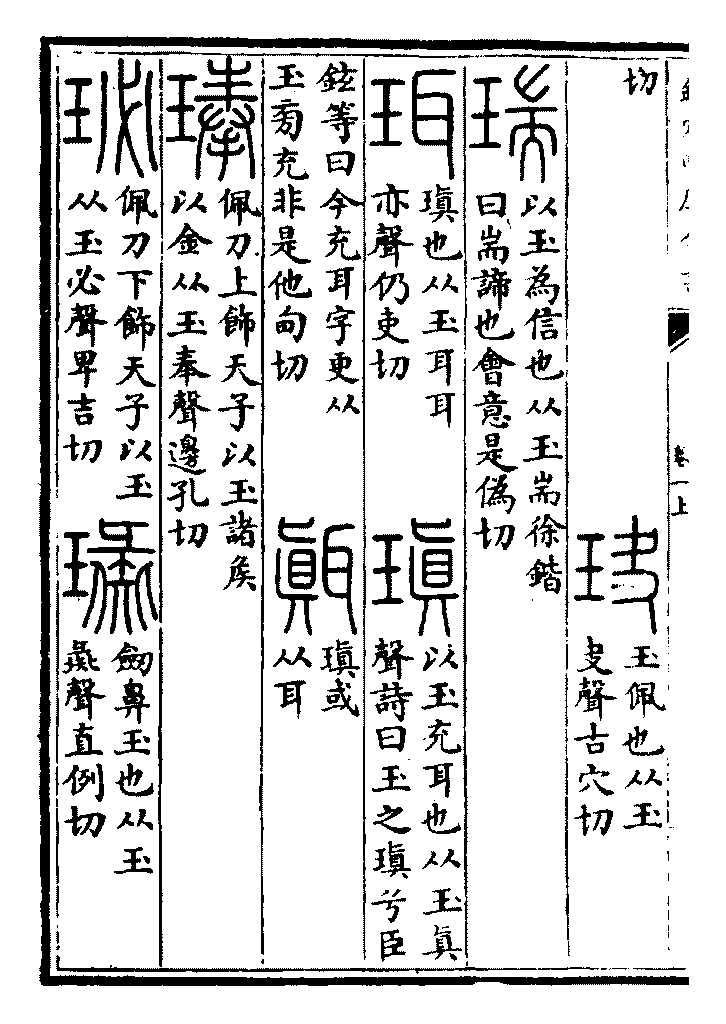 卷一上
切
玦
玉佩也从玉
夬聲古穴切
瑞
以玉為信也从玉耑徐鍇
曰耑諦也會意是偽切
珥
瑱也从玉耳耳
亦聲仍吏切
瑱
以玉充耳也从玉眞
聲詩曰玉之瑱兮臣
鉉等曰今充耳字更从
玉旁充非是他甸切
䏁
瑱或
从耳
琫
佩刀上飾天子以玉諸侯
以金从玉奉聲邊孔切
珌
佩刀下飾天子以玉
从玉必聲畀吉切
璏
劒鼻玉也从玉
彘聲直例切